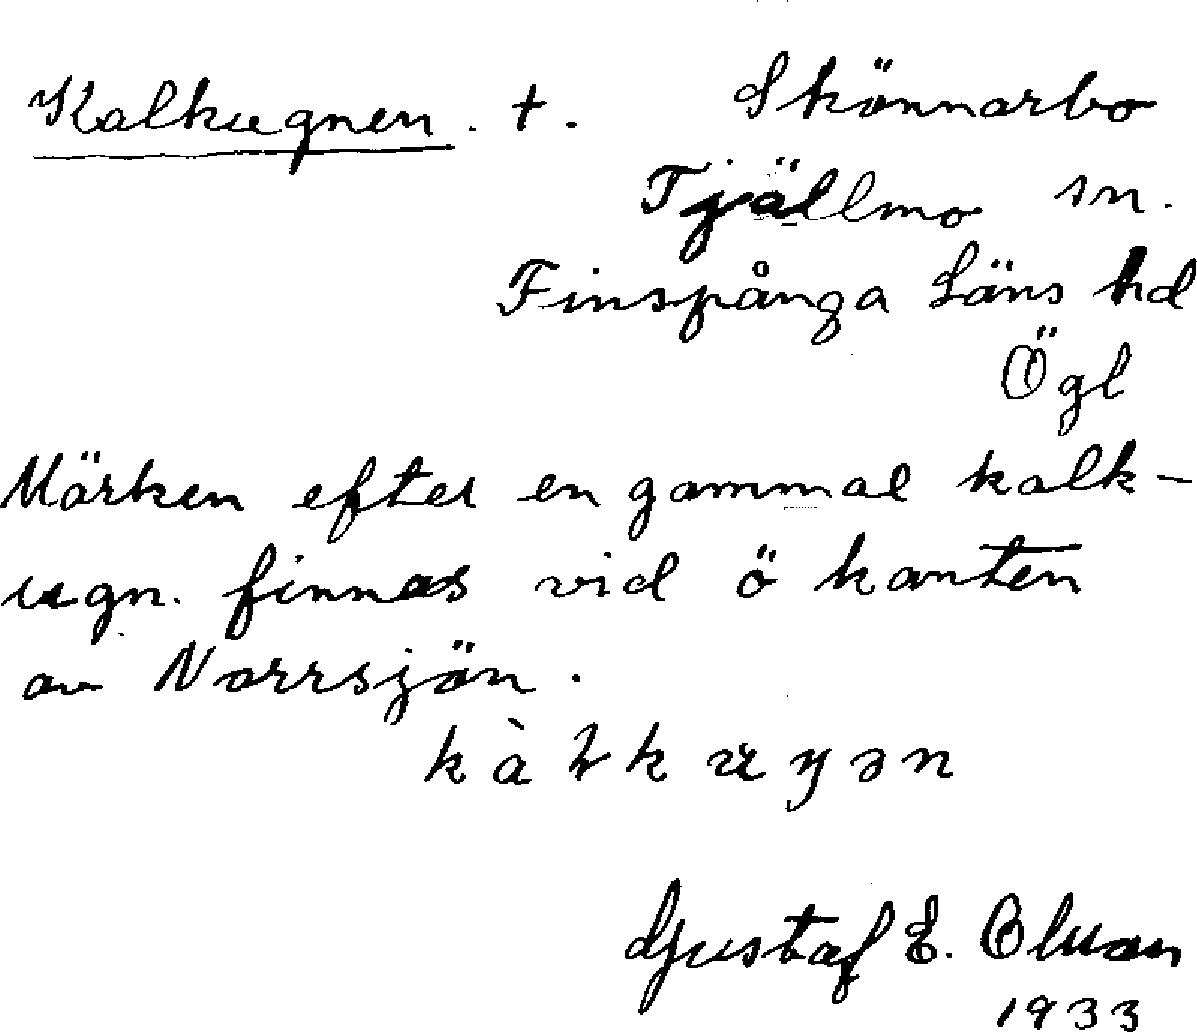 Kalkugnen. +. Skönnarbo
Tjällmo sn.
Finspånga Läns hd
Ögl
Märken efter en gammal kalk-
ugn. finnas vid ö kanten
av Norrsjön.
Gustaf E.
1933